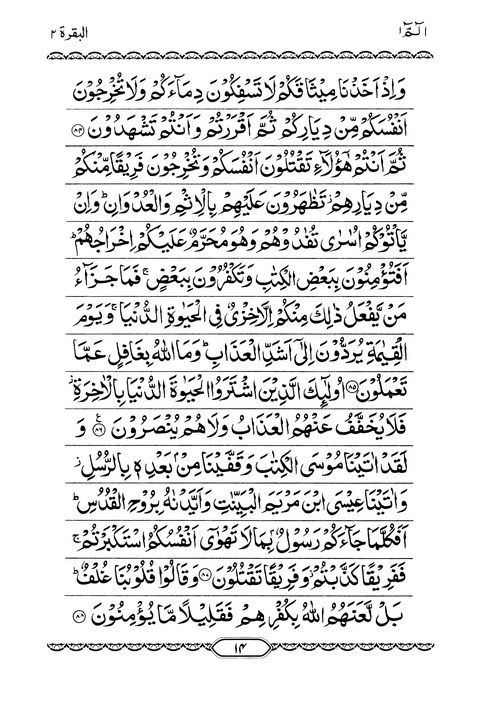 الٓمّٓ ۱
البقرة ۲
وَاِذْ اَخَذْنَا مِيْثَاقَكُمْ لَا تَسْفِكُوْنَ دِمَآءَكُمْ وَلَا تُخْرِجُوْنَ
اَنْفُسَكُمْ مِّنْ دِيَارِكُمْ ثُمَّ اَقْرَرْتُمْ وَاَنْتُمْ تَشْهَدُوْنَ ۝۸۴
ثُمَّ اَنْتُمْ هٰٓؤُلَآءِ تَقْتُلُوْنَ اَنْفُسَكُمْ وَتُخْرِجُوْنَ فَرِيْقًا مِّنْكُمْ
مِّنْ دِيَارِهِمْ ز تَظٰهَرُوْنَ عَلَيْهِمْ بِالْاِثْمِ وَالْعُدْوَانِ ؕ وَاِنْ
يَّاْتُوْكُمْ اُسٰرٰى تُفٰدُوْهُمْ وَهُوَ مُحَرَّمٌ عَلَيْكُمْ اِخْرَاجُهُمْ ؕ
اَفَتُؤْمِنُوْنَ بِبَعْضِ الْكِتٰبِ وَتَكْفُرُوْنَ بِبَعْضٍ ۚ فَمَا جَزَآءُ
مَنْ يَّفْعَلُ ذٰلِكَ مِنْكُمْ اِلَّا خِزْىٌ فِى الْحَيٰوةِ الدُّنْيَا ۚ وَيَوْمَ
الْقِيٰمَةِ يُرَدُّوْنَ اِلٰٓى اَشَدِّ الْعَذَابِ ؕ وَمَا اللّٰهُ بِغَافِلٍ عَمَّا
تَعْمَلُوْنَ ۝۸۵ اُولٰٓئِكَ الَّذِيْنَ اشْتَرَوُا الْحَيٰوةَ الدُّنْيَا بِالْاٰخِرَةِ ز
فَلَا يُخَفَّفُ عَنْهُمُ الْعَذَابُ وَلَا هُمْ يُنْصَرُوْنَ ۝۸۶ ع وَ
لَقَدْ اٰتَيْنَا مُوْسَى الْكِتٰبَ وَقَفَّيْنَا مِنْۢ بَعْدِهٖ بِالرُّسُلِ ز
وَاٰتَيْنَا عِيْسَى ابْنَ مَرْيَمَ الْبَيِّنٰتِ وَاَيَّدْنٰهُ بِرُوْحِ الْقُدُسِ ؕ
اَفَكُلَّمَا جَآءَكُمْ رَسُوْلٌۢ بِمَا لَا تَهْوٰٓى اَنْفُسُكُمُ اسْتَكْبَرْتُمْ ۚ
فَفَرِيْقًا كَذَّبْتُمْ ز وَفَرِيْقًا تَقْتُلُوْنَ ۝۸۷ وَقَالُوْا قُلُوْبُنَا غُلْفٌ ؕ
بَلْ لَّعَنَهُمُ اللّٰهُ بِكُفْرِهِمْ فَقَلِيْلًا مَّا يُؤْمِنُوْنَ ۝۸۸
۱۴